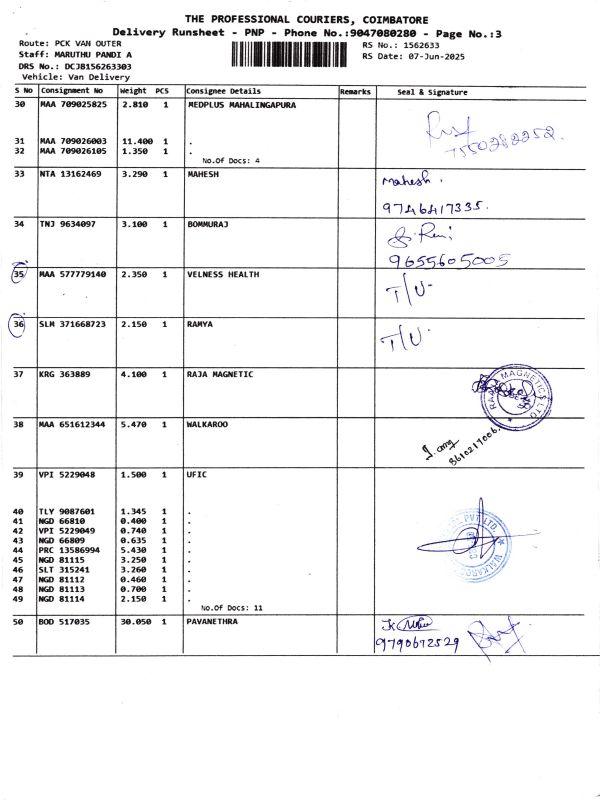 THE PROFESSIONAL COURIERS, COIMBATORE
Delivery Runsheet - PNP - Phone No.:9047080280 - Page No.:3
Route: PCK VAN OUTER
RS No.: 1562633
Staff: MARUTHU PANDI A
RS Date: 07-Jun-2025
DRS No.: DCJB156263303
Vehicle: Van Delivery
S No Consignment No Weight PCS Consignee Details Remarks Seal & Signature
30 MAA 709025825 2.810 1 MEDPLUS MAHALINGAPURA
7550282252.
31 MAA 709026003 11.400 1 .
32 MAA 709026105 1.350 1 .
No.Of Docs: 4
33 NTA 13162469 3.290 1 MAHESH
Mahesh.
9746417335.
34 TNJ 9634097 3.100 1 BOMMURAJ
9655605005
35 MAA 577779140 2.350 1 VELNESS HEALTH
T/U
36 SLM 371668723 2.150 1 RAMYA
T/U
37 KRG 363889 4.100 1 RAJA MAGNETIC
38 MAA 651612344 5.470 1 WALKAROO
8610217006.
39 VPI 5229048 1.500 1 UFIC
40 TLY 9087601 1.345 1 .
41 NGD 66810 0.400 1 .
42 VPI 5229049 0.740 1 .
43 NGD 66809 0.635 1 .
44 PRC 13586994 5.430 1 .
45 NGD 81115 3.250 1 .
46 SLT 315241 3.260 1 .
47 NGD 81112 0.460 1 .
48 NGD 81113 0.700 1 .
49 NGD 81114 2.150 1 .
No.Of Docs: 11
50 BOD 517035 30.050 1 PAVANETHRA
9790672529